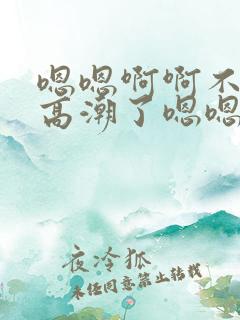 嗯嗯啊啊不
高潮了嗯嗯
夜冷狐
未经同意禁止转载